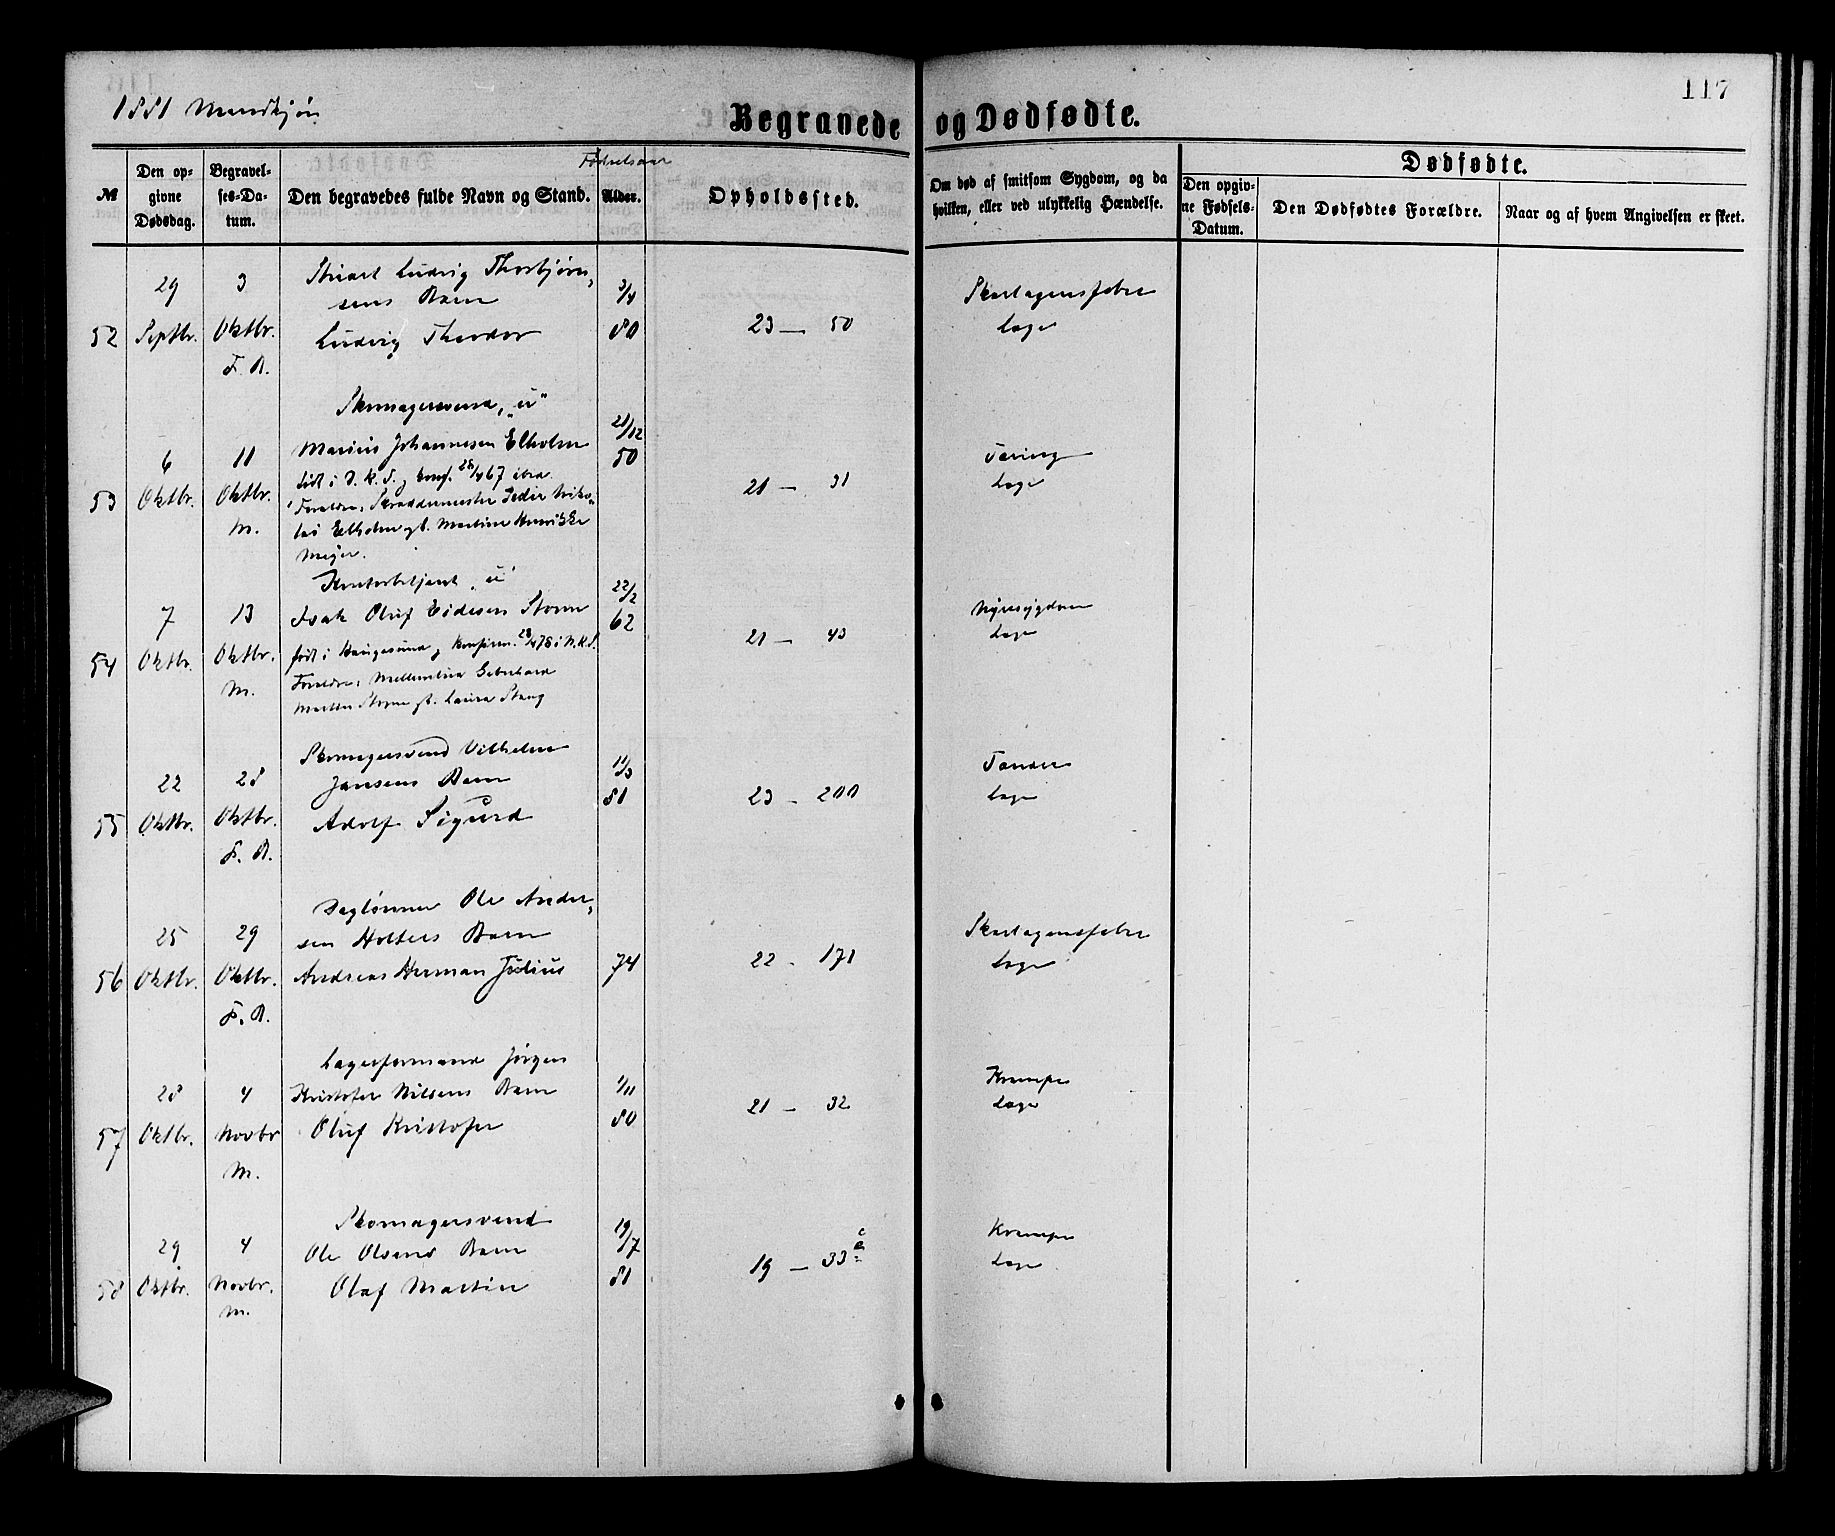 117
1881 Mandkjøn
Begravede og Dødfødte.
Fødselsaar
№
Den opgivne Dødsdag.
Begravelses-Datum.
Den begravedes fulde Navn og Stand.
Alder.
Opholdssted.
Om død af smitsom Sygdom, og da hvilken, eller ved ulykkelig Hændelse.
Dødfødte.
Den opgivne Fødsels-Datum.
Den Dødfødtes Forældre.
Naar og af hvem Angivelsen er skeet.
Ludvig Thorbjørn-
29 3 sens Barn 3/4 Skarlagensfeber
52 Septbr. Oktbr. Ludvig Theodor 80 23 — 50 Læge
F. B.
Skomagersvend, "u"
6 11 Marius Johannesen Elholm 21/12 50 Tæring
født i D. K. S., konf. 28/4 67 ibid.
53 Oktbr. Oktbr. Forældre: Skræddermester Peder Nico- 21 — 31 Læge
M. lai Elholm og h. Martine Henrikke
Meyer.
Kontorbetjent "u"
7 13 Isak Oluf Eidesen Storm 22/2 62 Nyresygdom
54 Oktbr. Oktbr. født i Haugesund, konfirm. 28/4 78 i N. K. S. 21 — 43 Læge
M. Forældre: Gebehard
Morten Storm og h. Laura Stang
Skomagersvend Vilhelm
22 28 Jansens Barn 11/3
55 Oktbr. Oktbr. Adolf Sigurd 81 23 — 200 Tænder Læge
F. B.
Dagløner Ole Ander-
25 29 sen Holters Barn Skarlagensfeber
56 Oktbr. Oktbr. Andreas Herman Julius 74 22 — 171 Læge
F. B.
Lagerformand Jørgen
28 4 Kristofer Nilsens Barn 1/11 Krampe
57 Oktbr. Novbr Oluf Kristofer 80 21 — 32 Læge
M.
Skomagersvend
29 4 Ole Olsens Barn 19/7 Krampe
58 Oktbr. Novbr. Olaf Martin 81 19 — 33 Læge
M.